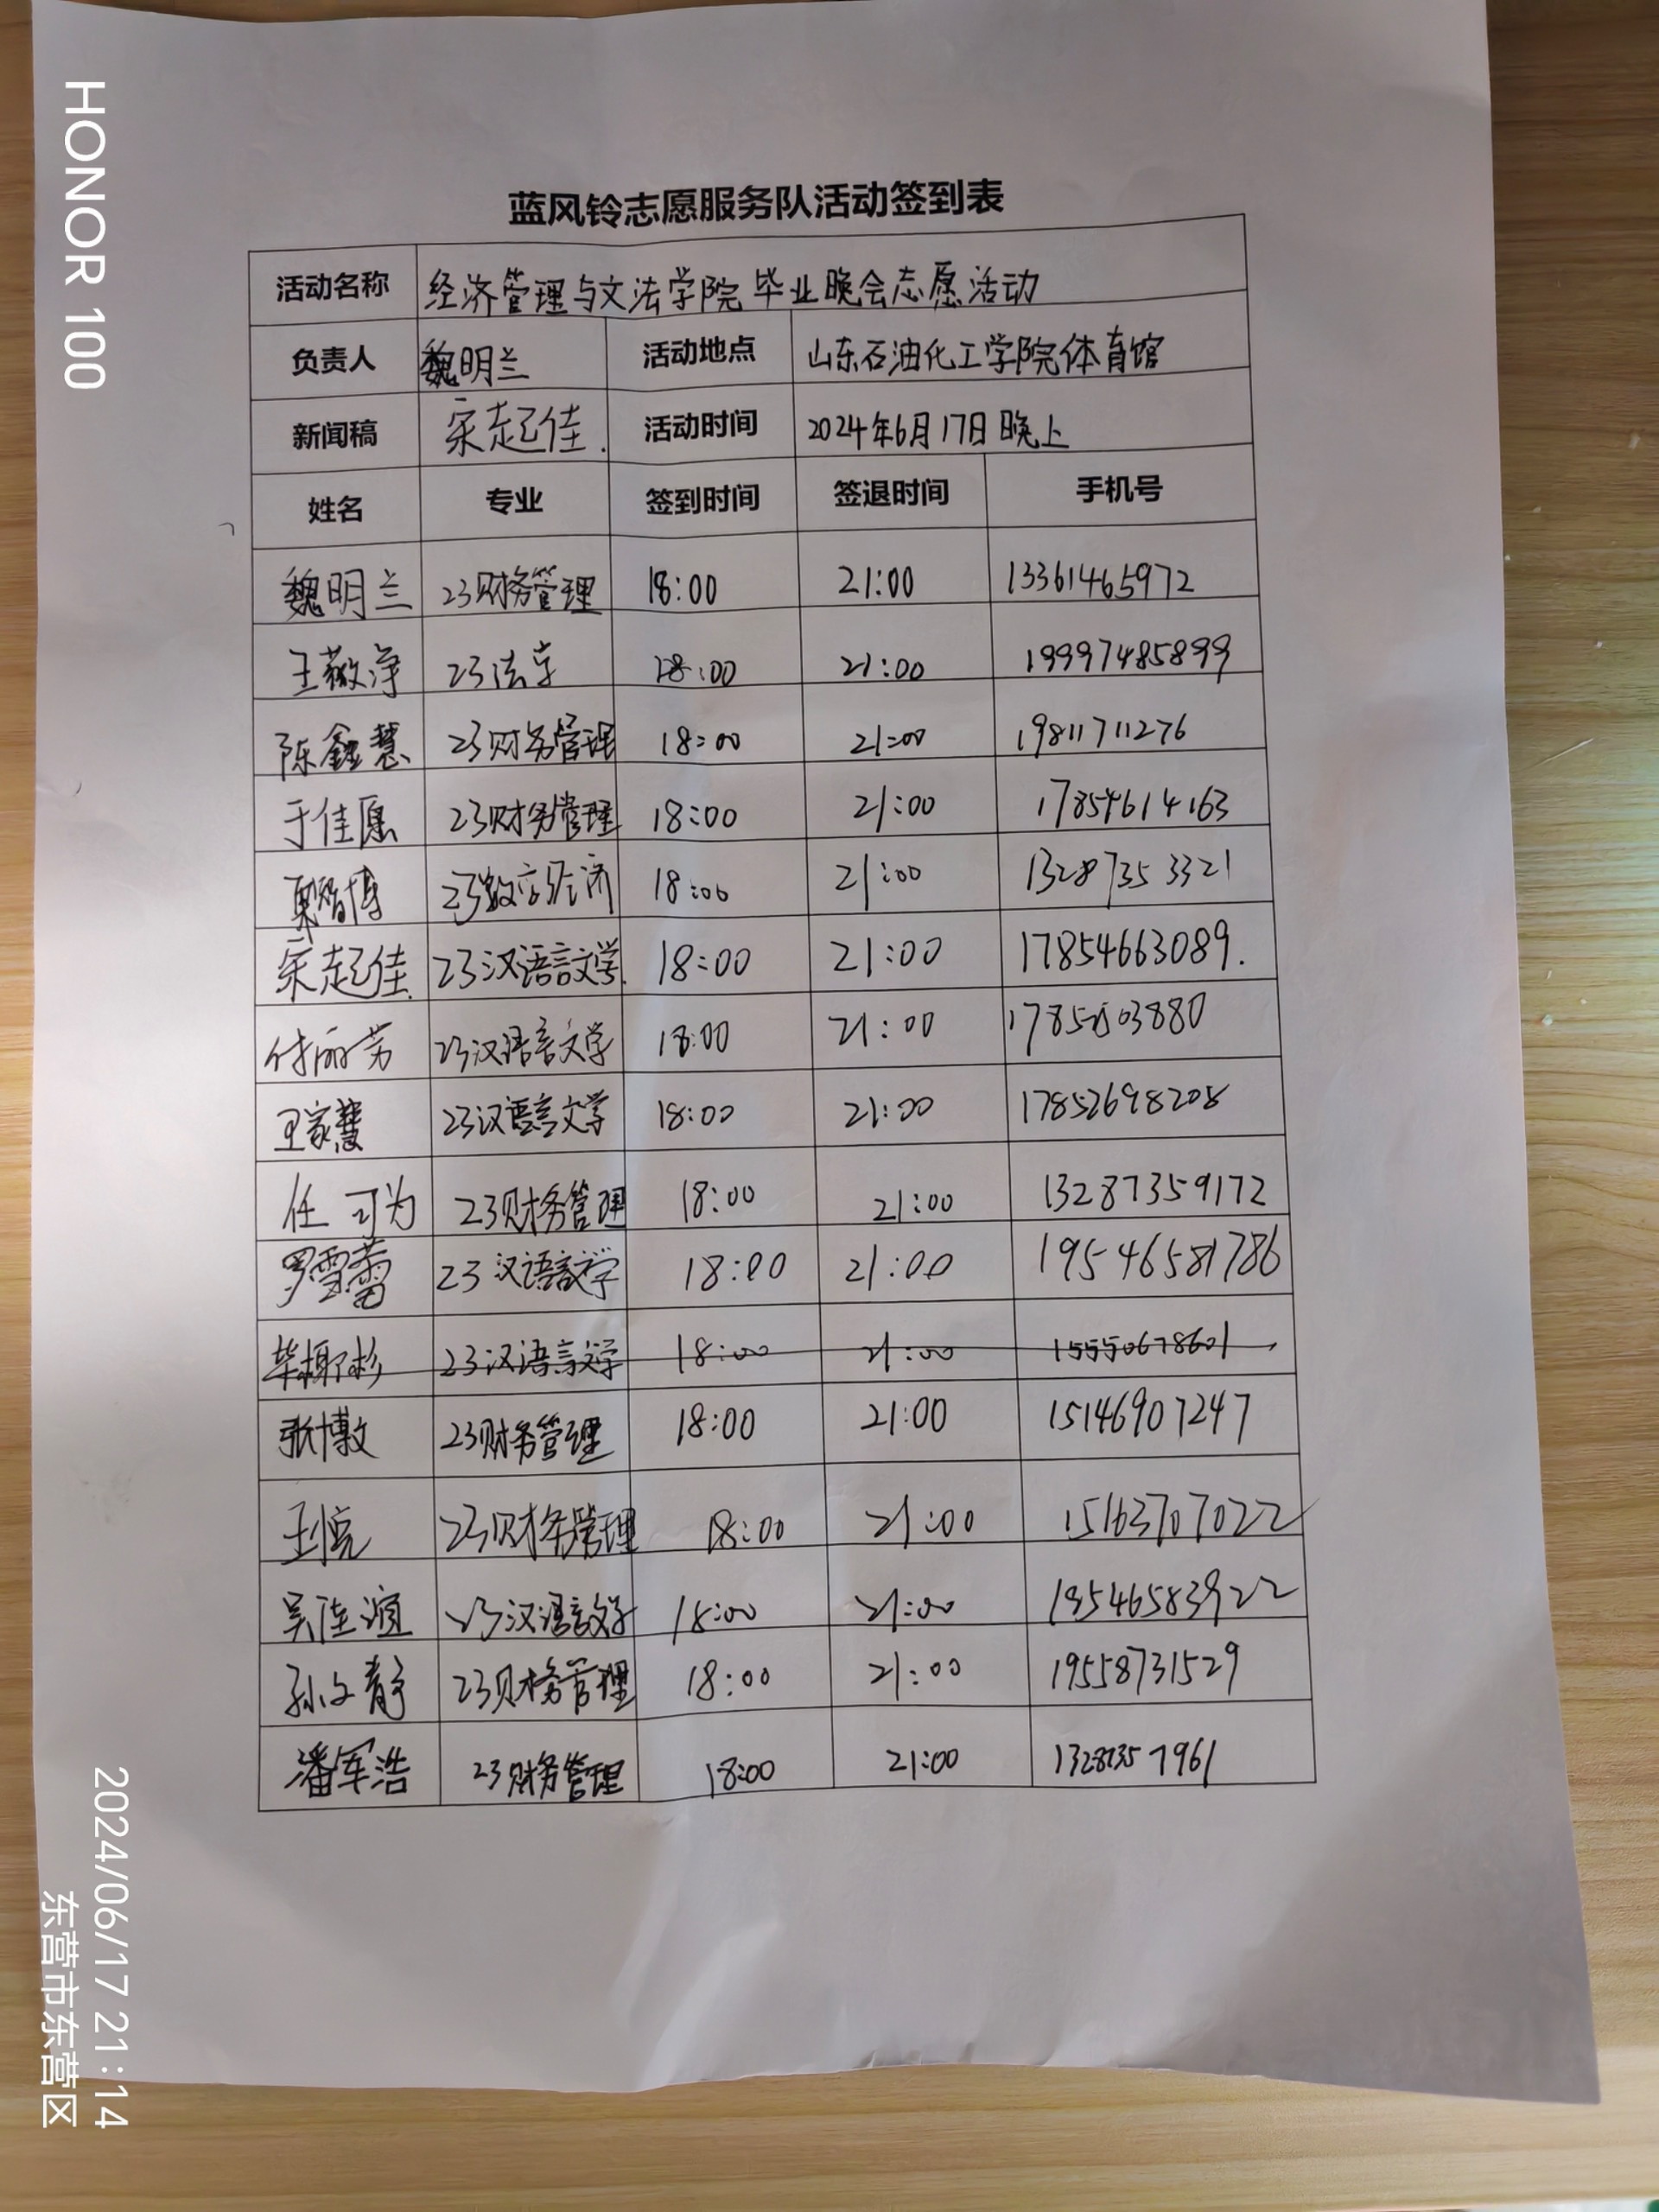 蓝风铃志愿服务队活动签到表
活动名称 经济管理与文法学院毕业晚会志愿活动
负责人 魏明兰 活动地点 山东石油化工学院体育馆
新闻稿 宋起佳. 活动时间 2024年6月17日晚上
姓名 专业 签到时间 签退时间 手机号
魏明兰 23财务管理 18:00 21:00 13361465972
王薇净 23法学 18:00 21:00 19997485899
陈鑫慧 23财务管理 18:00 21:00 19811711276
于佳愿 23财务管理 18:00 21:00 17854614163
23数字经济 18:00 21:00 13287353321
宋起佳. 23汉语言文学. 18:00 21:00 17854663089.
付丽芳 23汉语言文学 18:00 21:00
王家慧 23汉语言文学 18:00 21:00 17852698208
任可为 23财务管理 18:00 21:00 13287359172
罗雪蕾 23汉语言文学 18:00 21:00 19546581786
23汉语言文学 18:00 21:00 15550678601
张博文 23财务管理 18:00 21:00 15146907247
23财务管理 18:00 21:00 15163707022
吴佳谊 23汉语言文学 18:00 21:00 19546583922
孙文静 23财务管理 18:00 21:00 19558731529
潘军浩 23财务管理 18:00 21:00 13287357961
HONOR 100
2024/06/17 21:14
东营市东营区